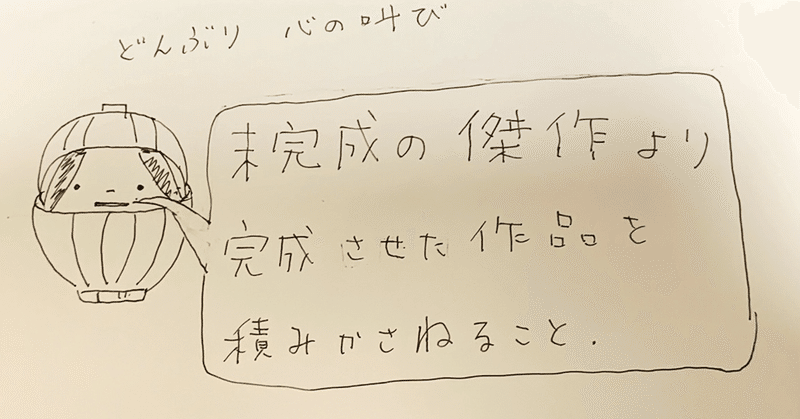 どんぶり 心の叫び
未完成の 傑作より
完成させた作品を
積みかさねること.